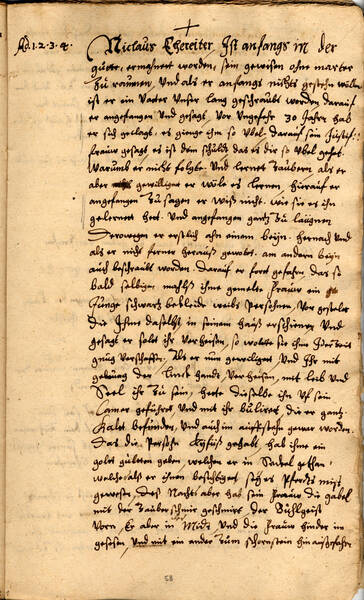 Ad. 1. 2. 3. 4.
Niclaus Ehereiter, Ist anfangs in der
guete, ermahnet worden, sein gewissen ohne marter
zu raumen, Und als er anfangs nichts gestehn wollen
ist er ein Vater Unser lang geschraubt worden darauf
er angefangen Und gesagt, Vor Ungefehr 30 Jahren hab
er sich geclagt, es gienge ihm so Vbel. darauf sein
fraw gesagt es ist dein schuld das es dir so Vbel gehet.
Warumb er nicht folgte. Und lernet zaubern, als er
aber gewilliget er wöle es lernen, hierauf er
angefangen zu sagen er wiß nicht. wie sie es ihn
gelernet hett. Und angefangen gantz zu laugnen
Derowegen er erstlich ahn einem beyn. hernach Und
als er nicht ferner heraus gewolt. am andern beyn
auch beschraubt worden. darauf er fort gefahren, das so
bald selbiger nachts ohne gemelte fraw ein
Junge schwartz bekleide weibs Persohn,
die Ihme daselbst in seinem hauß erschienen Und
gesagt er solt ihr verheisen, so wollte sie ihm
gnug verschaffen. Als er nun gewilliget, Und Ihr mit
gebung der linck handt, verheisen, mit leib Und
Seel ihr zu sein, hette dieselbe ihn Vf sein
Camer geführet Und mit ihr buliret, die er gantz
Kalt befunden, Und auch im auffstehn gewar worden.
Das die Persohn Kyhfüß gehabt, hab ihme ein
golt gulden geben, welchen er in Seckel gethan,
welche als er ihnen besichtiget seyes Pferds mist
gewesen, des Nachts aber hab sein fraw die gabel
mit der zauber schmir geschmirt, der Buhlgeist
vorn, Er aber in Mide Und die fraw hinden
gesesen, Und mit ein ander zum schornstein hinaußgefahren
58